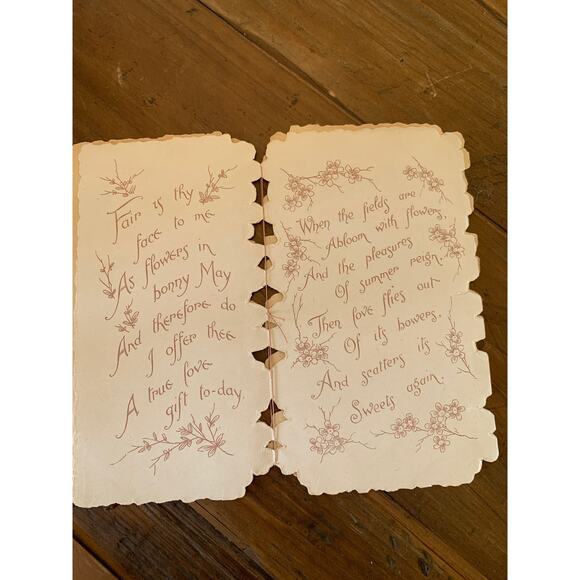 Fair is thy
face to me
As flowers in
bonny May
And therefore do
I offer thee
A true love
gift to-day.
When the fields are
Abloom with flowers,
And the pleasures
Of summer reign.
Then love flies out
Of its bowers,
And scatters its
Sweets again.